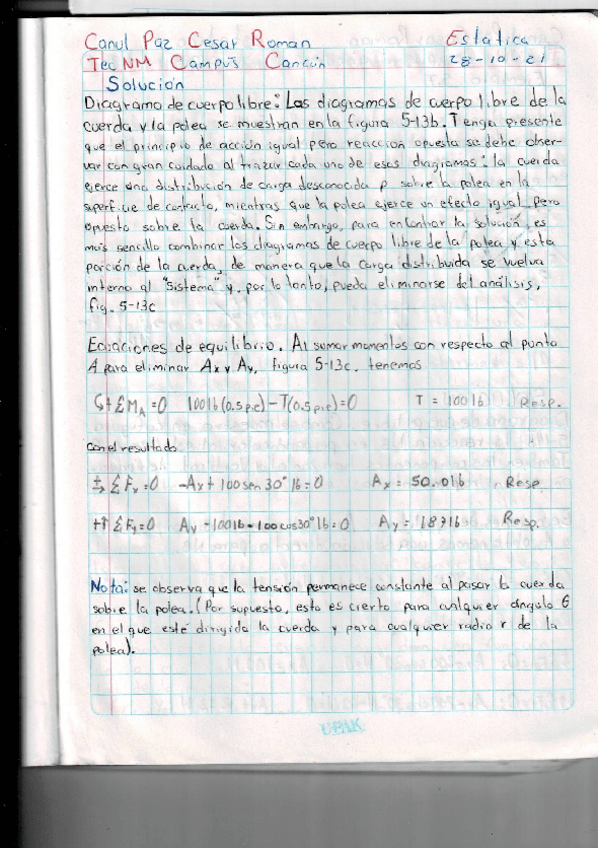 Canul Paz Cesar Roman Estatica
Tec NM Campus Cancún 28-10-21
Solución
Diagrama de cuerpo libre: Los diagramas de cuerpo libre de la
cuerda y la polea se muestran en la figura 5-13b. Tenga presente
que el principio de acción igual pero reacción opuesta se debe obser-
var con gran cuidado al trazar cada uno de esos diagramas: la cuerda
ejerce una distribución de carga desconocida p sobre la polea en la
superficie de contacto, mientras que la polea ejerce un efecto igual pero
opuesto sobre la cuerda. Sin embargo, para encontrar la solución, es
más sencillo combinar los diagramas de cuerpo libre de la polea y esta
porción de la cuerda, de manera que la carga distribuida se vuelva
interna al "sistema" y, por lo tanto, pueda eliminarse del análisis,
fig. 5-13c
Ecuaciones de equilibrio. Al sumar momentos con respecto al punto
A para eliminar Ax y Ay, figura 5-13c, tenemos
↶+ ΣM_A=0 100 lb (0.5 pie) - T(0.5 pie)=0 T = 100 lb Resp.
con el resultado
+→ ΣFx=0 -Ax + 100 sen 30° lb=0 Ax = 50.0 lb Resp
+↑ ΣFy=0 Ay -100 lb - 100 cos 30° lb=0 Ay = 187 lb Resp.
Nota: se observa que la tensión permanece constante al pasar la cuerda
sobre la polea. (Por supuesto, esto es cierto para cualquier ángulo θ
en el que esté dirigida la cuerda y para cualquier radio r de la
polea).